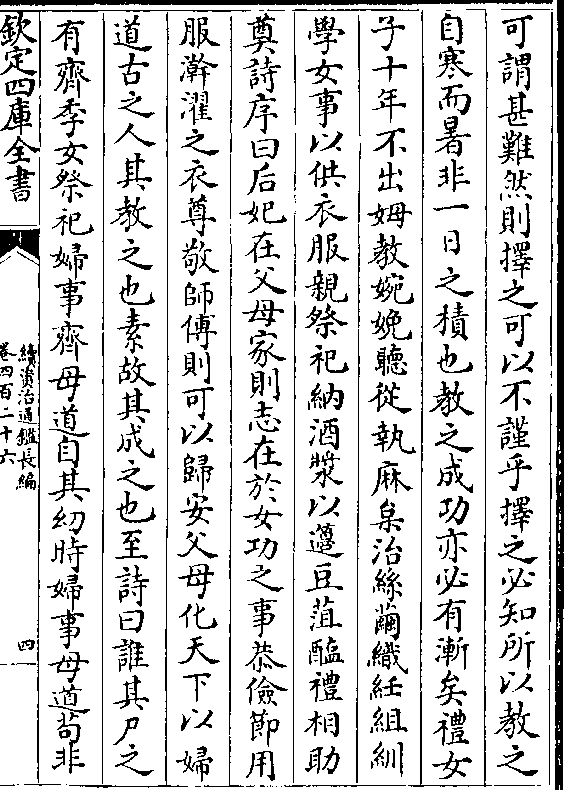 可謂甚難然則擇之可以不謹乎擇之必知所以教之
自寒而暑非一日之積也教之成功亦必有漸矣禮女
子十年不出姆教婉娩聽從執麻枲治絲繭織紝組紃
學女事以供衣服親祭祀納酒漿以籩豆菹醢禮相助
奠詩序曰后妃在父母家則志在於女功之事恭儉節用
服澣濯之衣尊敬師傅則可以歸安父母化天下以婦
道古之人其教之也素故其成之也至詩曰誰其尸之
有齊季女祭祀婦事齊母道自其幼時婦事母道苟非
欽定四庫全書
續資治通鑑長編
卷四百二十六
四